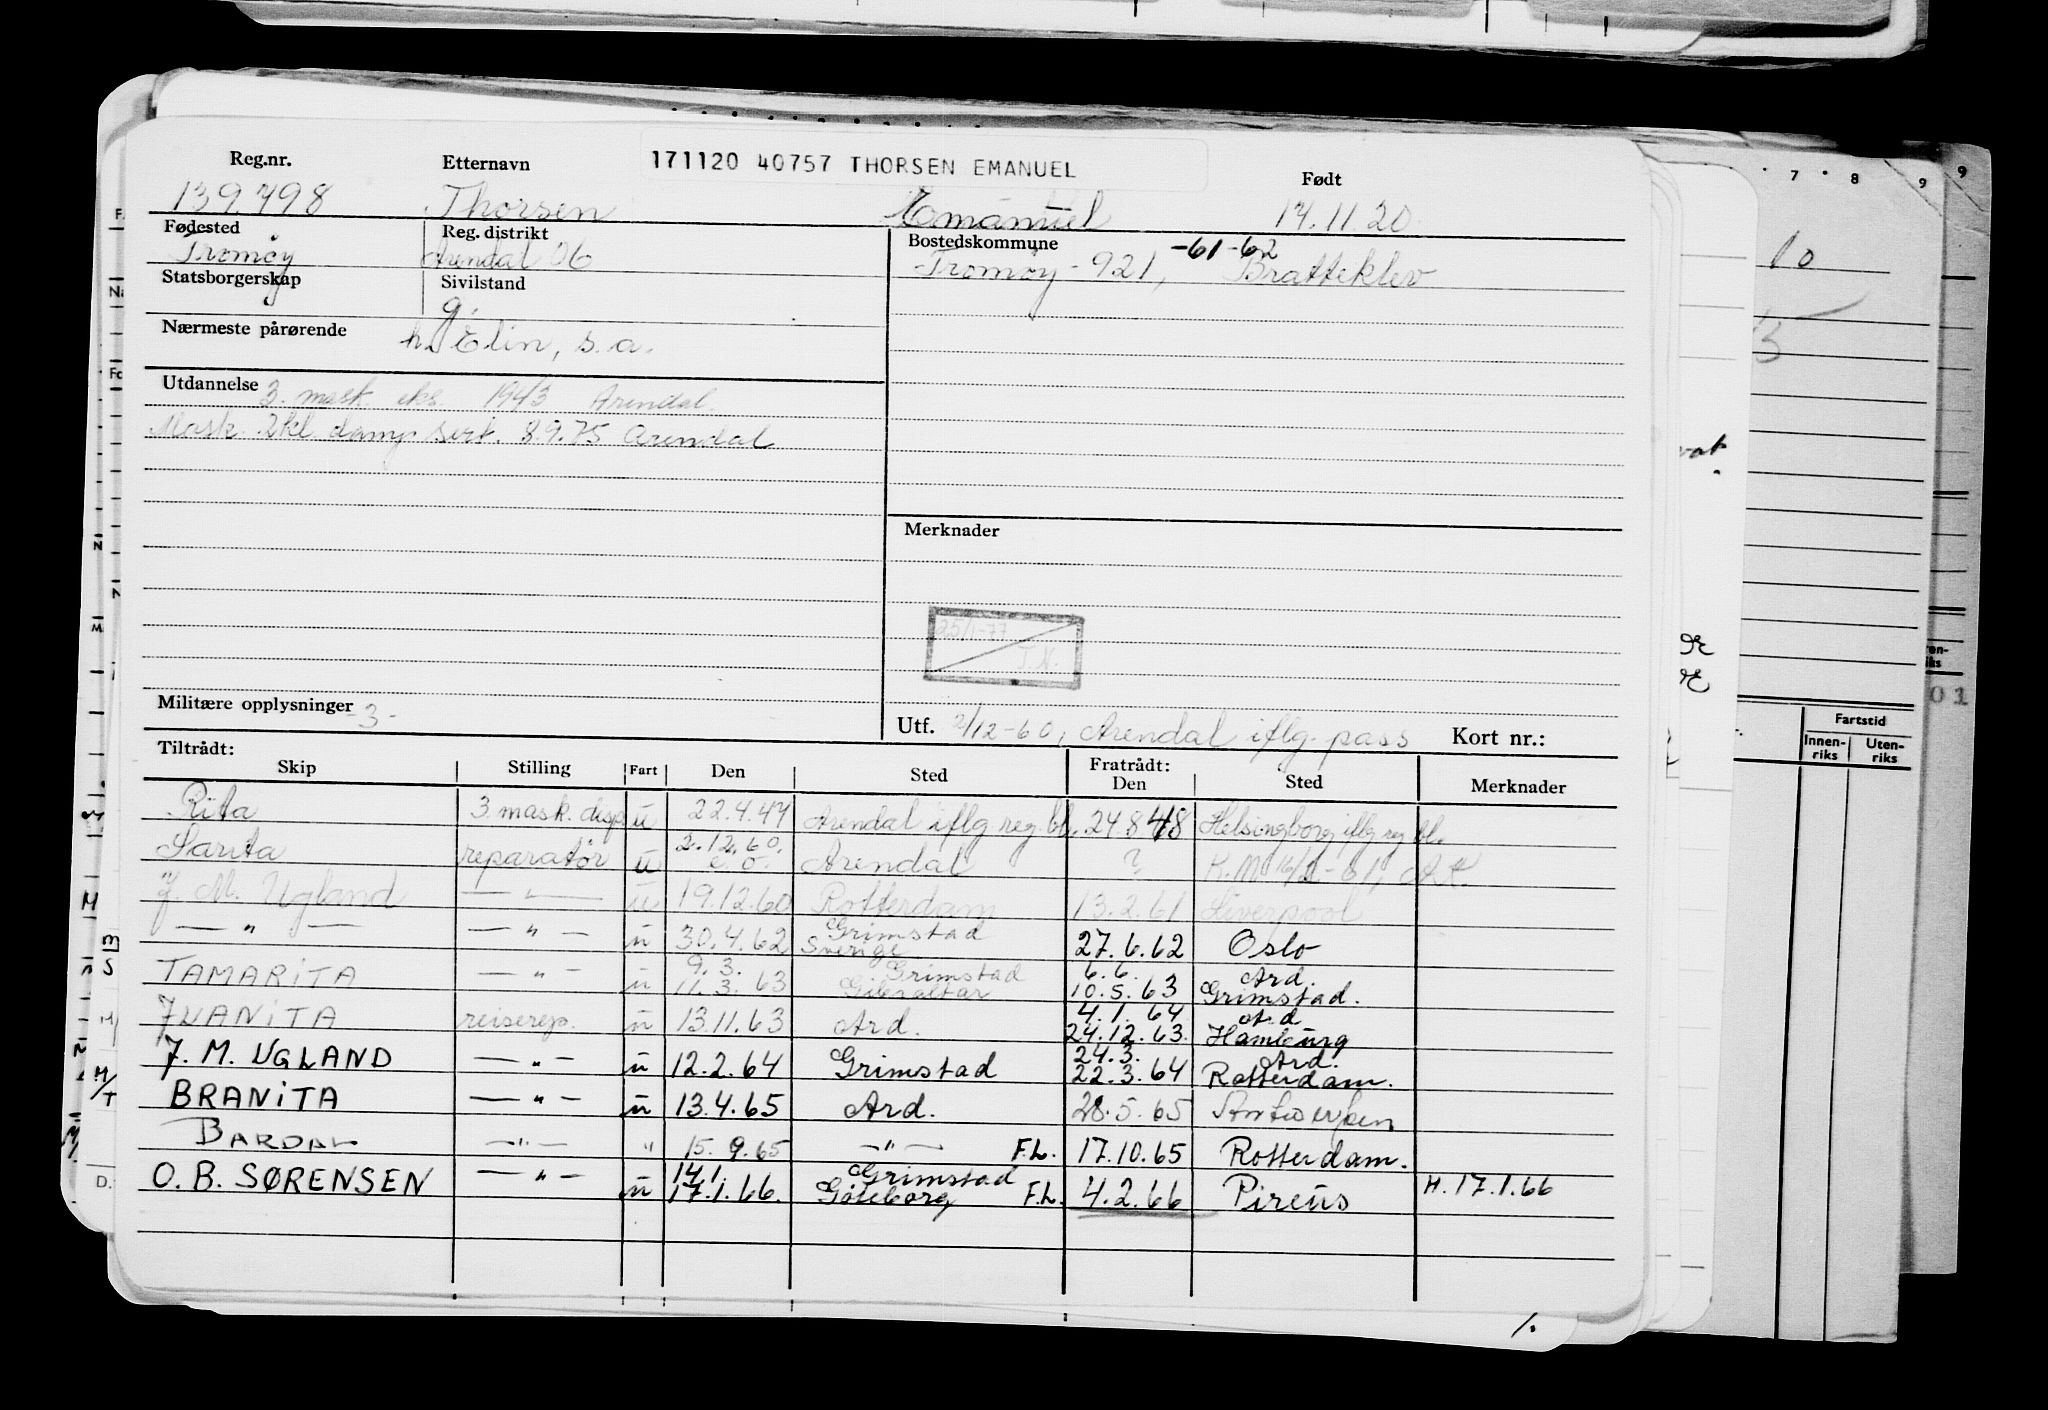 171120 40757 THORSEN EMANUEL
Reg.nr. Etternavn Født
139.798 Thorsen Emanuel 17.11.20
Fødested Reg. distrikt Bostedskommune
Tromøy Arendal 06 Tromøy - 921, -61-62 Bratteklev
Statsborgerskap Sivilstand
g.
Nærmeste pårørende h. Elin, s.a.
Utdannelse 3. mask. eks. 1943 Arendal.
Mask. 2kl. damp sert. 8.9.75 Arendal
Merknader
25/1-77
T.N.
Militære opplysninger -3-
Utf. 2/12-60, Arendal iflg. pass Kort nr.:
Tiltrådt: Fratrådt:
Skip Stilling Fart Den Sted Den Sted Merknader
Rita 3. mask. disp. u 22.4.47 Arendal iflg reg. bl. 24.8.48 Helsingborg iflg reg bl.
Sarita reparatør u 2.12.60. e.o. Arendal ?
J. M. Ugland — " — u 19.12.60 Rotterdam 13.2.61 Liverpool
— " — — " — u 30.4.62 Grimstad Sverige 27.6.62 Oslo
TAMARITA — " — u 9.3. 11.3.63 Grimstad Gibraltar 6.6. 10.5.63 Ard. Grimstad.
JUANITA reiserep. u 13.11.63 Ard. 4.1.64 24.12.63. Ard Hamburg
J. M. UGLAND — " — u 12.2.64 Grimstad 24.3. 22.3.64 Ard. Rotterdam.
BRANITA — " — u 13.4.65 Ard. 28.5.65 Antwerpen
BARDAL — " — " 15.9.65 — " — F.L. 17.10.65 Rotterdam.
O. B. SØRENSEN — " — u 14.1. 17.1.66. Grimstad Göteborg F.L. 4.2.66 Pireus H. 17.1.66
7 8 9 9
10
Fartstid
Innenriks Utenriks
01